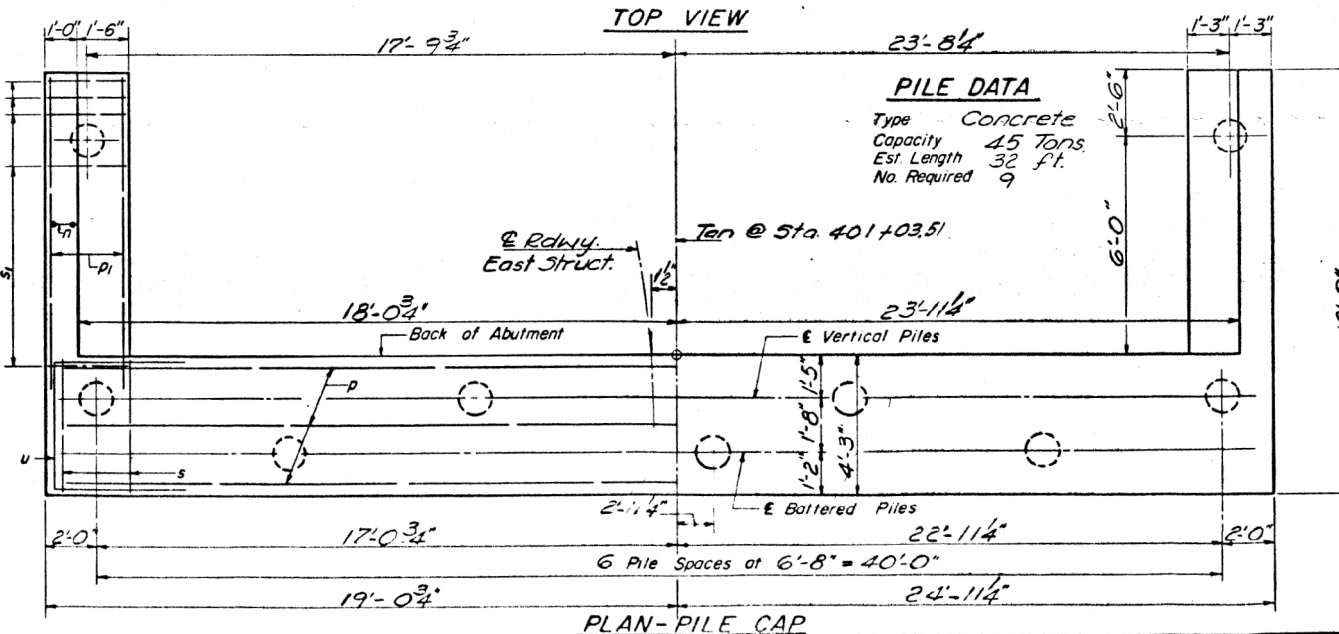 TOP VIEW
1'-0" 1'-6"
17'-9 3/4"
23'-8 1/4"
1'-3" 1'-3"
PILE DATA
Type Concrete
Capacity 45 Tons.
Est. Length 32 ft.
No. Required 9
2'-6"
6'-0"
℄ Rdwy.
East Struct.
Tan @ Sta. 401+03.51
1 1/2"
s1
p1
18'-0 3/4"
23'-11 1/4"
Back of Abutment
℄ Vertical Piles
p
1'-5"
1'-8"
1'-2"
4'-3"
u
s
2'-11 1/4"
℄ Battered Piles
2'-0"
17'-0 3/4"
22'-11 1/4"
2'-0"
6 Pile Spaces at 6'-8" = 40'-0"
19'-0 3/4"
24'-11 1/4"
PLAN-PILE CAP